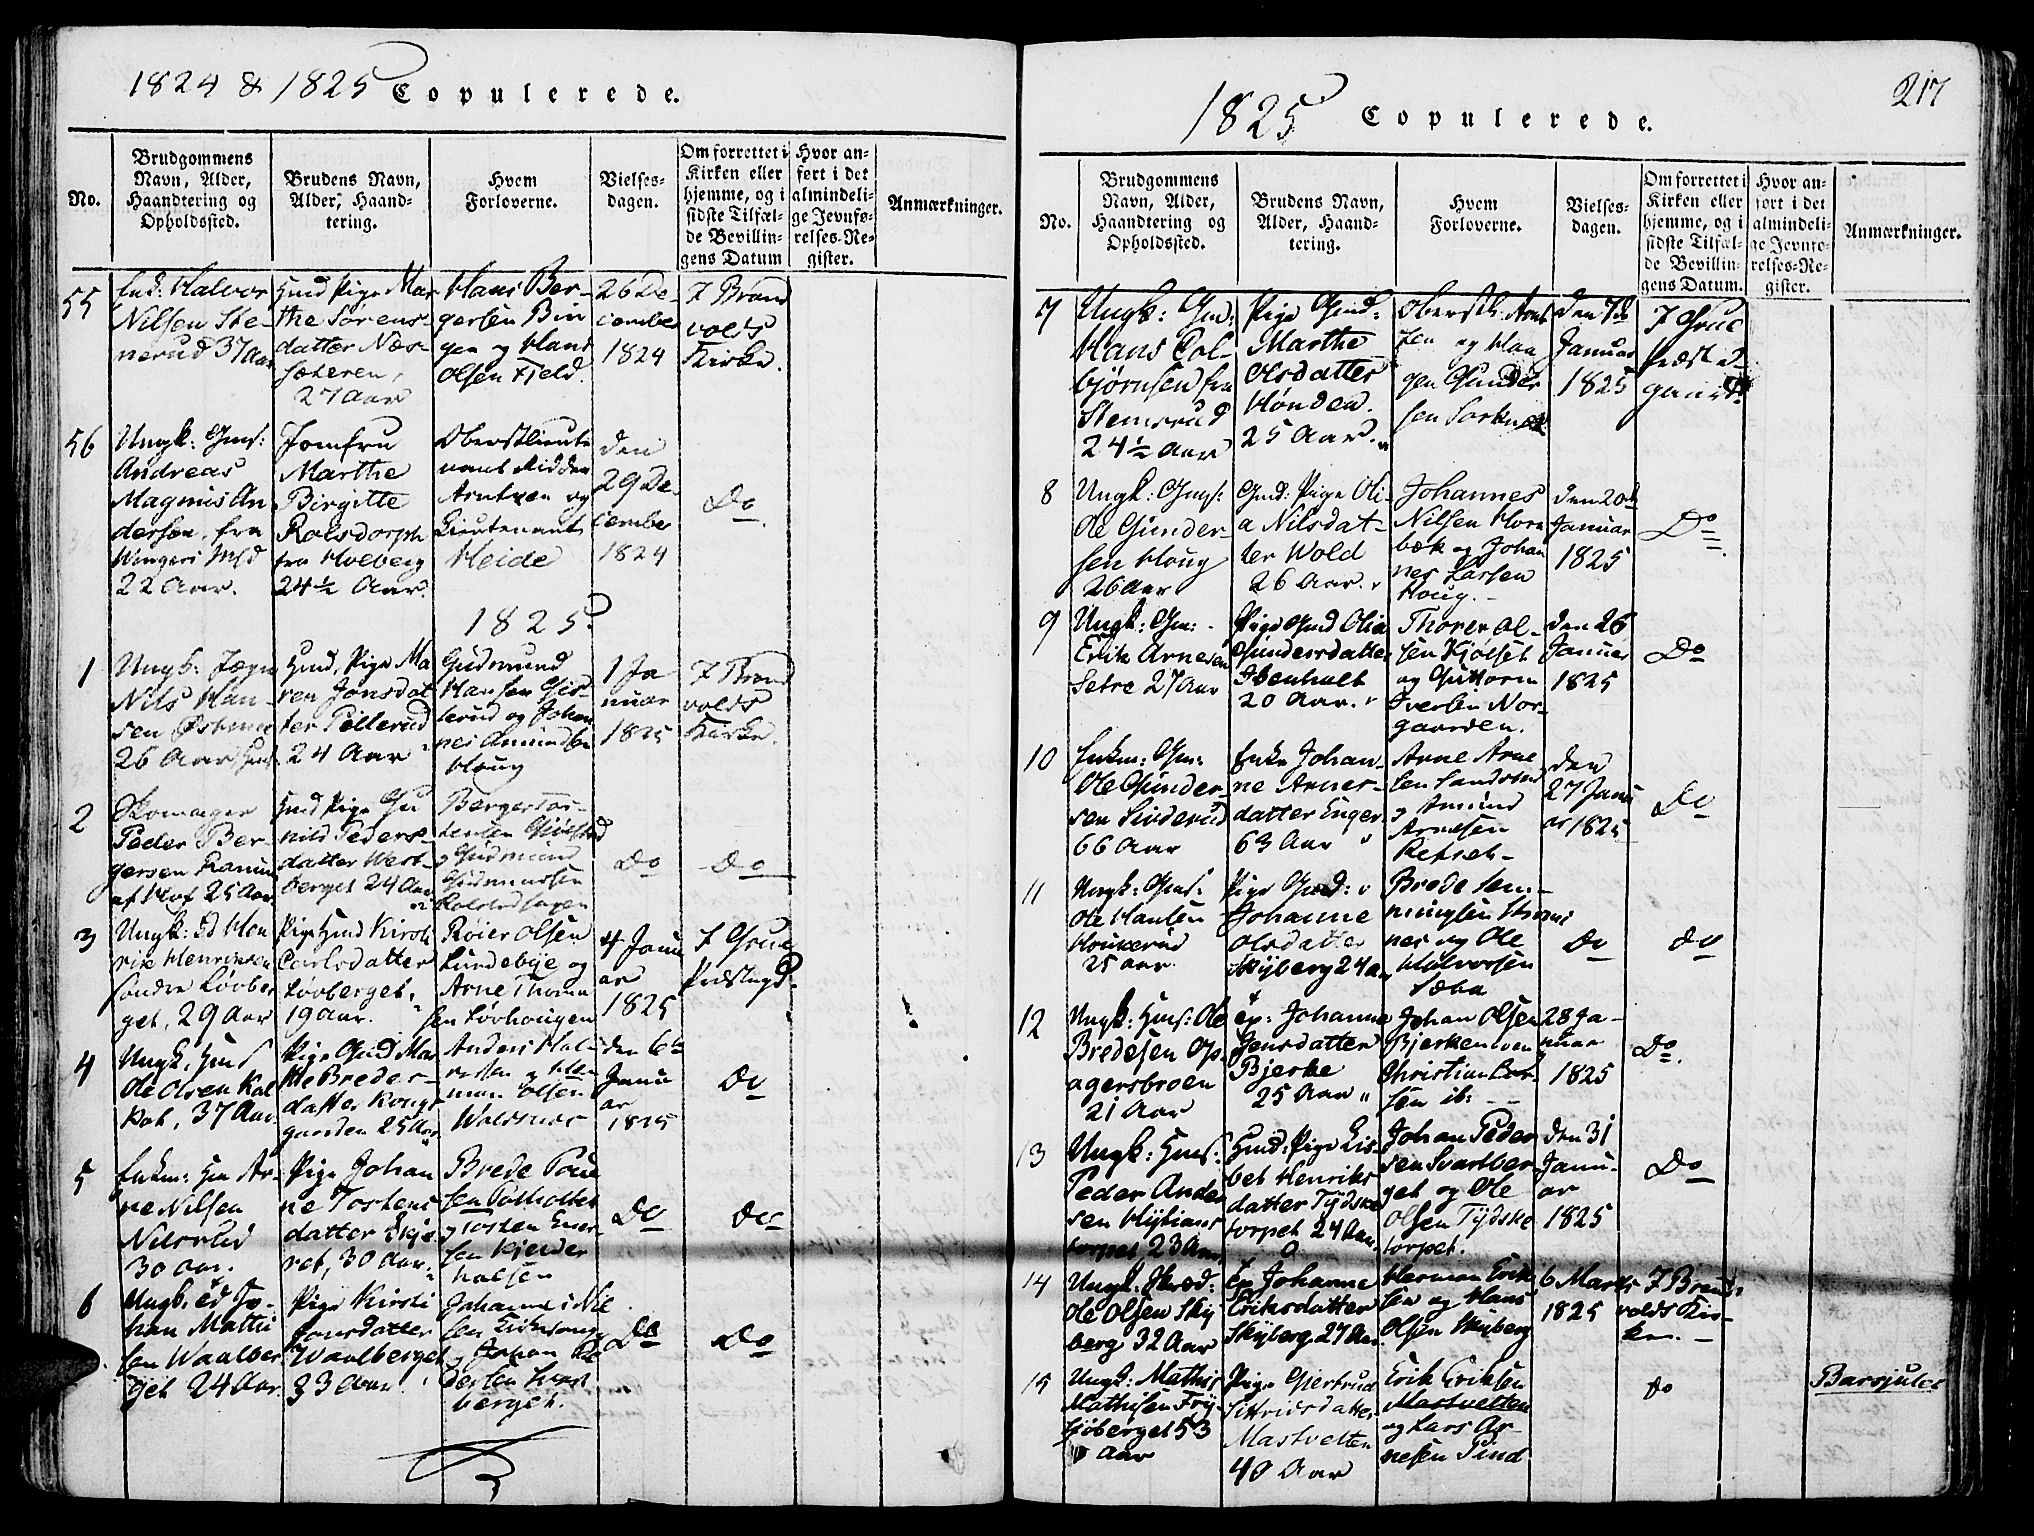 1824 & 1825 Copulerede.
No.
Brudgommens
Navn, Alder,
Haandtering og
Opholdssted.
Brudens Navn,
Alder, Haand-
tering.
Hvem
Forloverne.
Vielses-
dagen.
Om forrettet i
Kirken eller
hjemme, og i
sidste Tilfæl-
de Bevillin-
gens Datum
Hvor an-
ført i det
almindeli-
ge Jevnfø-
relses-Re-
gister.
Anmærkninger.
55
Halvor
Nilsen Ste-
nerud 37 Aar
Pige Mar
the Sørens-
datter Næs-
sæteren,
27 Aar
Hans Ber-
gersen Bin
gen og Hans
Olsen Fjeld.
26 De-
cember
1824
I Brand
volds
Kirke.
56
Ungk: Gms:
Andreas
Magnus An
dersen, fra
Wingers
22 Aar.
Jomfru
Marthe
Birgitte
Rolsdorph
fra Holberg
24½ Aar.
Oberstlieute
nant Ridder
Arntzen og
Lieutenant
Heide
den
29 De-
cember
1824
Do
1825.
1
Ungk: Jæger
Nils Han-
sen
26 Aar
Pige Ma
ren Jonsdat
ter Pellerud
24 Aar
Gudmund
Hansen
og Johan
nes Amundsen
Houg
1 Ja
nuar
1825
I Brand
volds
Kirke.
2
Skomager
Peder Ber-
gersen
af Hof 25 Aar
Pige Gu
nild Peders-
datter West-
berget 24 Aar
Berger Tor-
stensen
og Gudmund
Gudmunsen
Do
Do
3
Ungk:
Henriksen
søndre Løvber
get, 29 Aar
Pige Kirsti
Carlsdatter
Løvberget,
19 Aar.
Røier Olsen
Lundebye og
Arne Thoma
sen Løvhougen
4 Janu
ar
1825
I Grue
Præstegd:
4
Ungk.
Ole Olsen Kal
Pot, 37 Aar
Pige Ma
the Breder-
datter Kongs
gaarden 25 Aar
Anders Hal
Olsen
den 6te
Janu
ar
1825
Do
5
Enkm: Ar-
ne Nilsen
Nilsrud
30 Aar.
Pige Johan
ne Tostens
datter
30 Aar.
Brede Poul
sen
og Tosten Ener-
sen Kjelder
halsen
Do
Do
6
Jo-
han Mathi
sen Waalber
get 24 Aar.
Pige Kirsti
Jonsdatter
Waalberget
33 Aar.
Johannes Nil
sen
og Johan Pe
dersen
berget.
Do
Do
217
1825 Copulerede.
No.
Brudgommens
Navn, Alder,
Haandtering og
Opholdssted.
Brudens Navn,
Alder, Haand-
tering.
Hvem
Forloverne.
Vielses-
dagen.
Om forrettet i
Kirken eller
hjemme, og i
sidste Tilfæl-
de Bevillin-
gens Datum.
Hvor an-
ført i det
almindeli-
ge Jevnfø-
relses-Re-
gister.
Anmærkninger.
7
Ungk: Gm:
Hans Col-
bjørnsen fra
Stemsrud
24½ Aar
Pige Gmd:
Marthe
Olsdatter
Honden.
25 Aar.
Oberstl: Arnt
zen og Haa
gen Gunder
sen Sorknæs
den 7de
Januar
1825
I Grue
Præste
gaard
8
Ungk: Gms:
Ole Gunder-
sen Houg
26 Aar
Gmd: Pige Oli-
a Nilsdat-
ter Wold
26 Aar.
Johannes
Nilsen Horn
bæk og Johan
nes Larsen
Houg.
den 20de
Januar
1825
Do
9
Ungk: Gm:
Erik Arnesen
Setre 27 Aar
Pige Gmd Olia
Gundersdatter
Ibenholt
20 Aar.
Thorer Ol-
sen Kjølset
og Guttorm
Iversen Nor-
gaarden.
den 26
Januar
1825
Do
10
Enkm: Gm:
Ole Gunder-
sen Sinderud
66 Aar
Enke Johan-
ne Arnes-
datter Enger
63 Aar
Arne Arne
sen Sandstad
og Amund
Arnesen
Refset-
den
27 Janu
ar 1825
Do
11
Ungk: Gms:
Ole Hansen
Houkerud
25 Aar.
Pige Gmd:
Johanne
Olsdatter
Skyberg 24 a
Brede Hem-
mingsen
nes og Ole
Halvorsen
Sæta
Do
Do
12
Ungk: Hms: Ole
Bredesen Op-
agersbroen
21 Aar
ep: Johanne
Jensdatter
Bjerke
25 Aar
Johan Olsen
Bjerken
Christian Lar-
sen ib:
28 Ja-
nuar
1825
Do.
13
Ungk: Hms:
Peder Ander
sen
torpet 23 Aar
Hmd: Pige Lis-
bet Henriks
datter Tydske
torpet 24 Aar.
Johan Peder
sen Svartber
get og Ole
Olsen Tydske
torpet.
den 31
Janu-
ar
1825
Do
14
Ungk. Skræd:
Ole Olsen Sky
berg 32 Aar
Ep Johanne
Eriksdatter
Skyberg 27 Aar
Herman Erik
sen og Hans
Olsen Skyberg
6 Marts
1825
I Brand-
volds Kir-
ke.
15
Ungk: Mathis
Mathisen Fry-
sjøberget 53
Aar
Pige Gjertrud
Sittridsdatter
Mastvetten
40 Aar
Erik Eriksen
Mastvetten
og Lars Ar-
nesen Pind
Do
Barsjulet